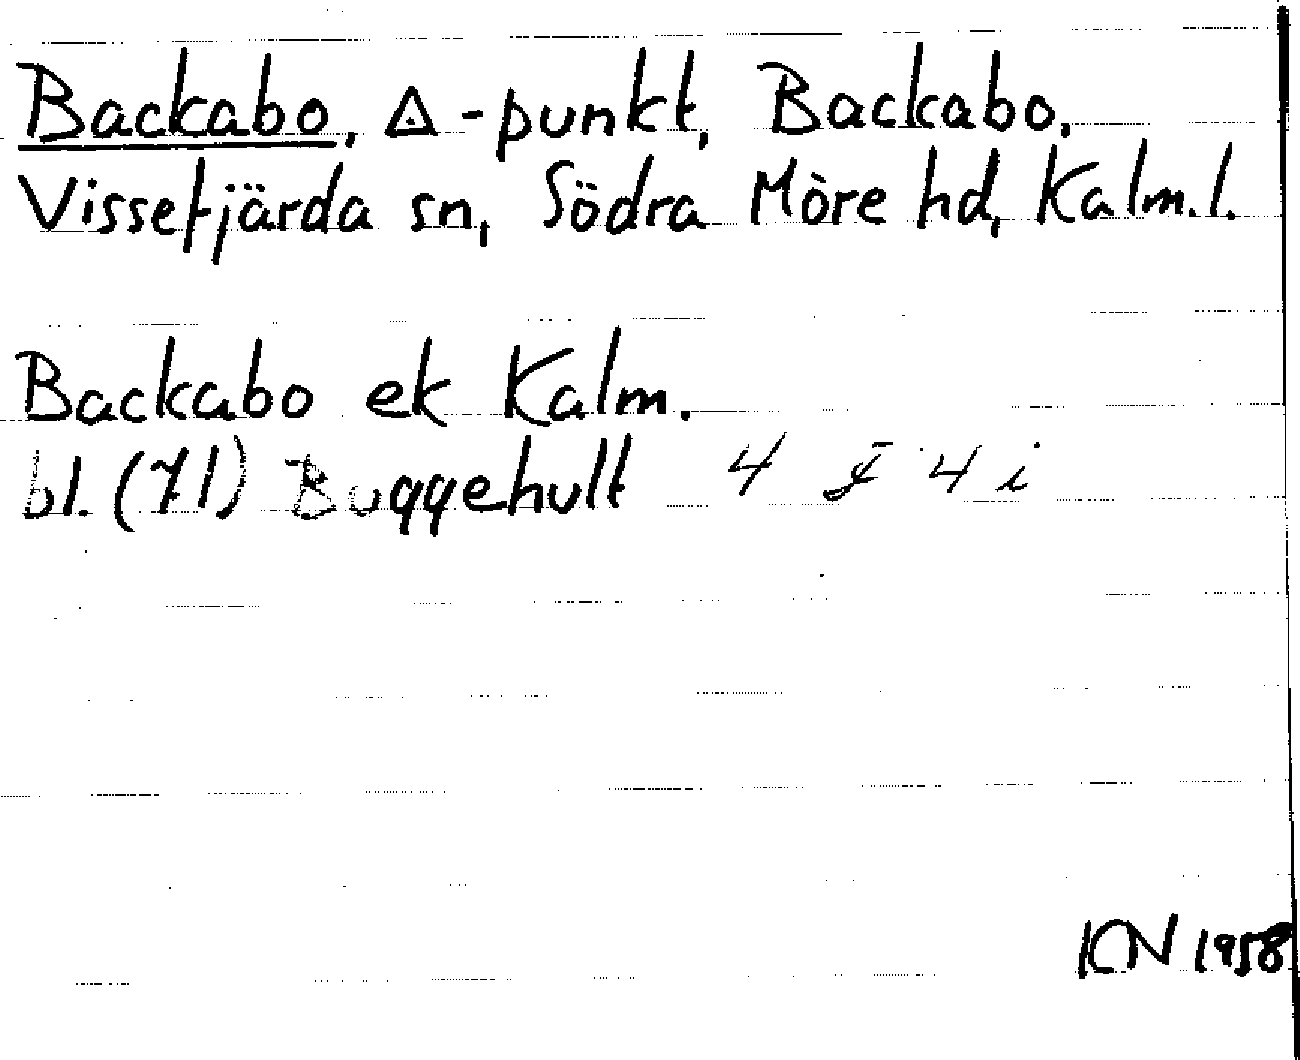 Backabo, ◬-punkt, Backabo,
Vissefjärda sn, Södra Möre hd, Kalm.l.
Backabo ek Kalm.
bl. (71) Buggehult 4 F 4 i
KN 1958